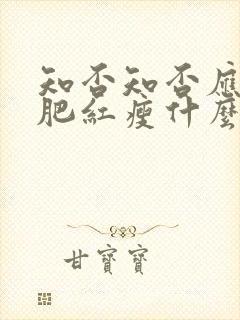 知否知否應
肥紅瘦什麼
甘寶寶